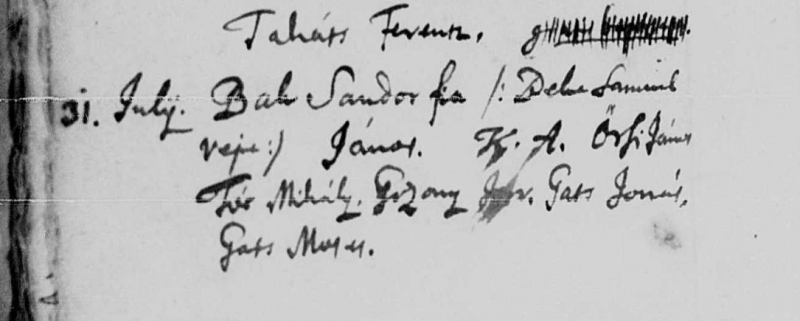 Takáts Ferentz.
31. July. Bak Sandor fia /: Deke Samuel
veje :/ János. K. A. Őrsi János
Mihály. Gozony Gats Jonás,
Gats Moses.